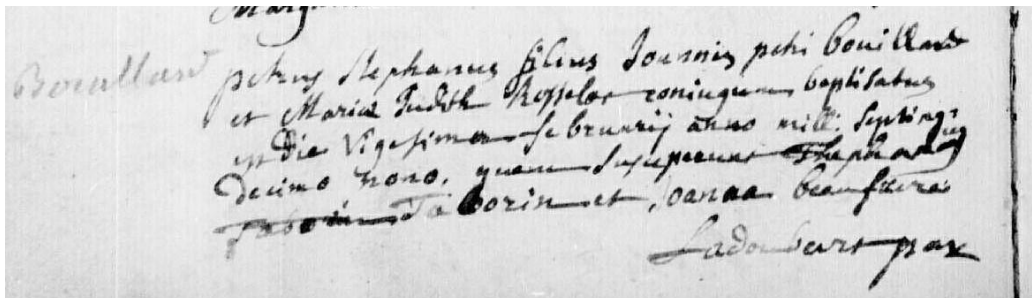 Bouillard
petrus stephanus filius Joannis petri bouillard
et Mariæ Judith Rosselot coniugum baptisatus
est die Vigesima februarij anno mill: septing:
Decimo nono. quem susceperunt Stephanus
Taborin et Joanna beaufrere